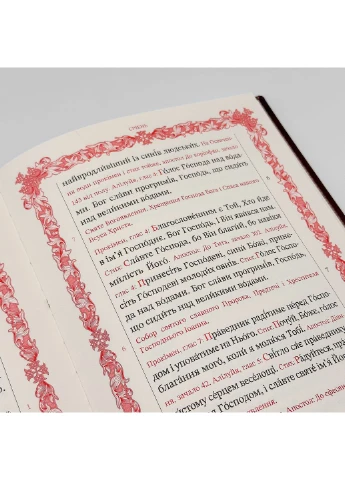 СІЧЕНЬ
найвродливіший із синів людських.
143 від полу. Алілуйя, глас 4: Го́лос Го́спода над во́да-
ми. Бог сла́ви прогримі́в, Госпо́дь, що сиди́ть
над вели́кими во́дами.
6
Святе Богоявлення. Хрещення Господа Бога і Спаса нашого
Ісуса Христа.
7
Прокімен, глас 4: Благослове́нний є Той, Хто йде
в ім'я́ Госпо́днє, Бог Госпо́дь, і Він яви́вся нам.
Стих: Сла́вте Го́спода, бо Він благи́й, бо наві́ки
ми́лість Його́. Апостол: До Тита, зачало 302. Алілуйя,
глас 4: Принесі́ть Го́сподеві, сини́ Бо́жі, прине-
сі́ть Го́сподеві молоди́х овні́в. Стих: Го́лос Го́спо-
да над во́дами. Бог сла́ви прогримі́в, Госпо́дь,
що сиди́ть над вели́кими во́дами.
7
Собор святого славного Пророка, Предтечі і Хрестителя
Господнього Іоанна.
Прокімен, глас 7: Пра́ведник раді́тиме пе́ред Го́спо-
дом і упова́тиме на Ньо́го. Стих: Почу́й, Бо́же, го́лос
блага́ння мого́, коли́ я молю́ся Тобі́. Апостол: Діян
ня, зачало 42. Алілуйя, глас 5: Сві́тло сяє пра́ведни
чи́стому се́рцем весе́лощі. Стих: Ра́дуйтеся, пра
ді Го́сподом, і сла́вте святе́ ім'я́ Йо
Апостол: До ефе
1